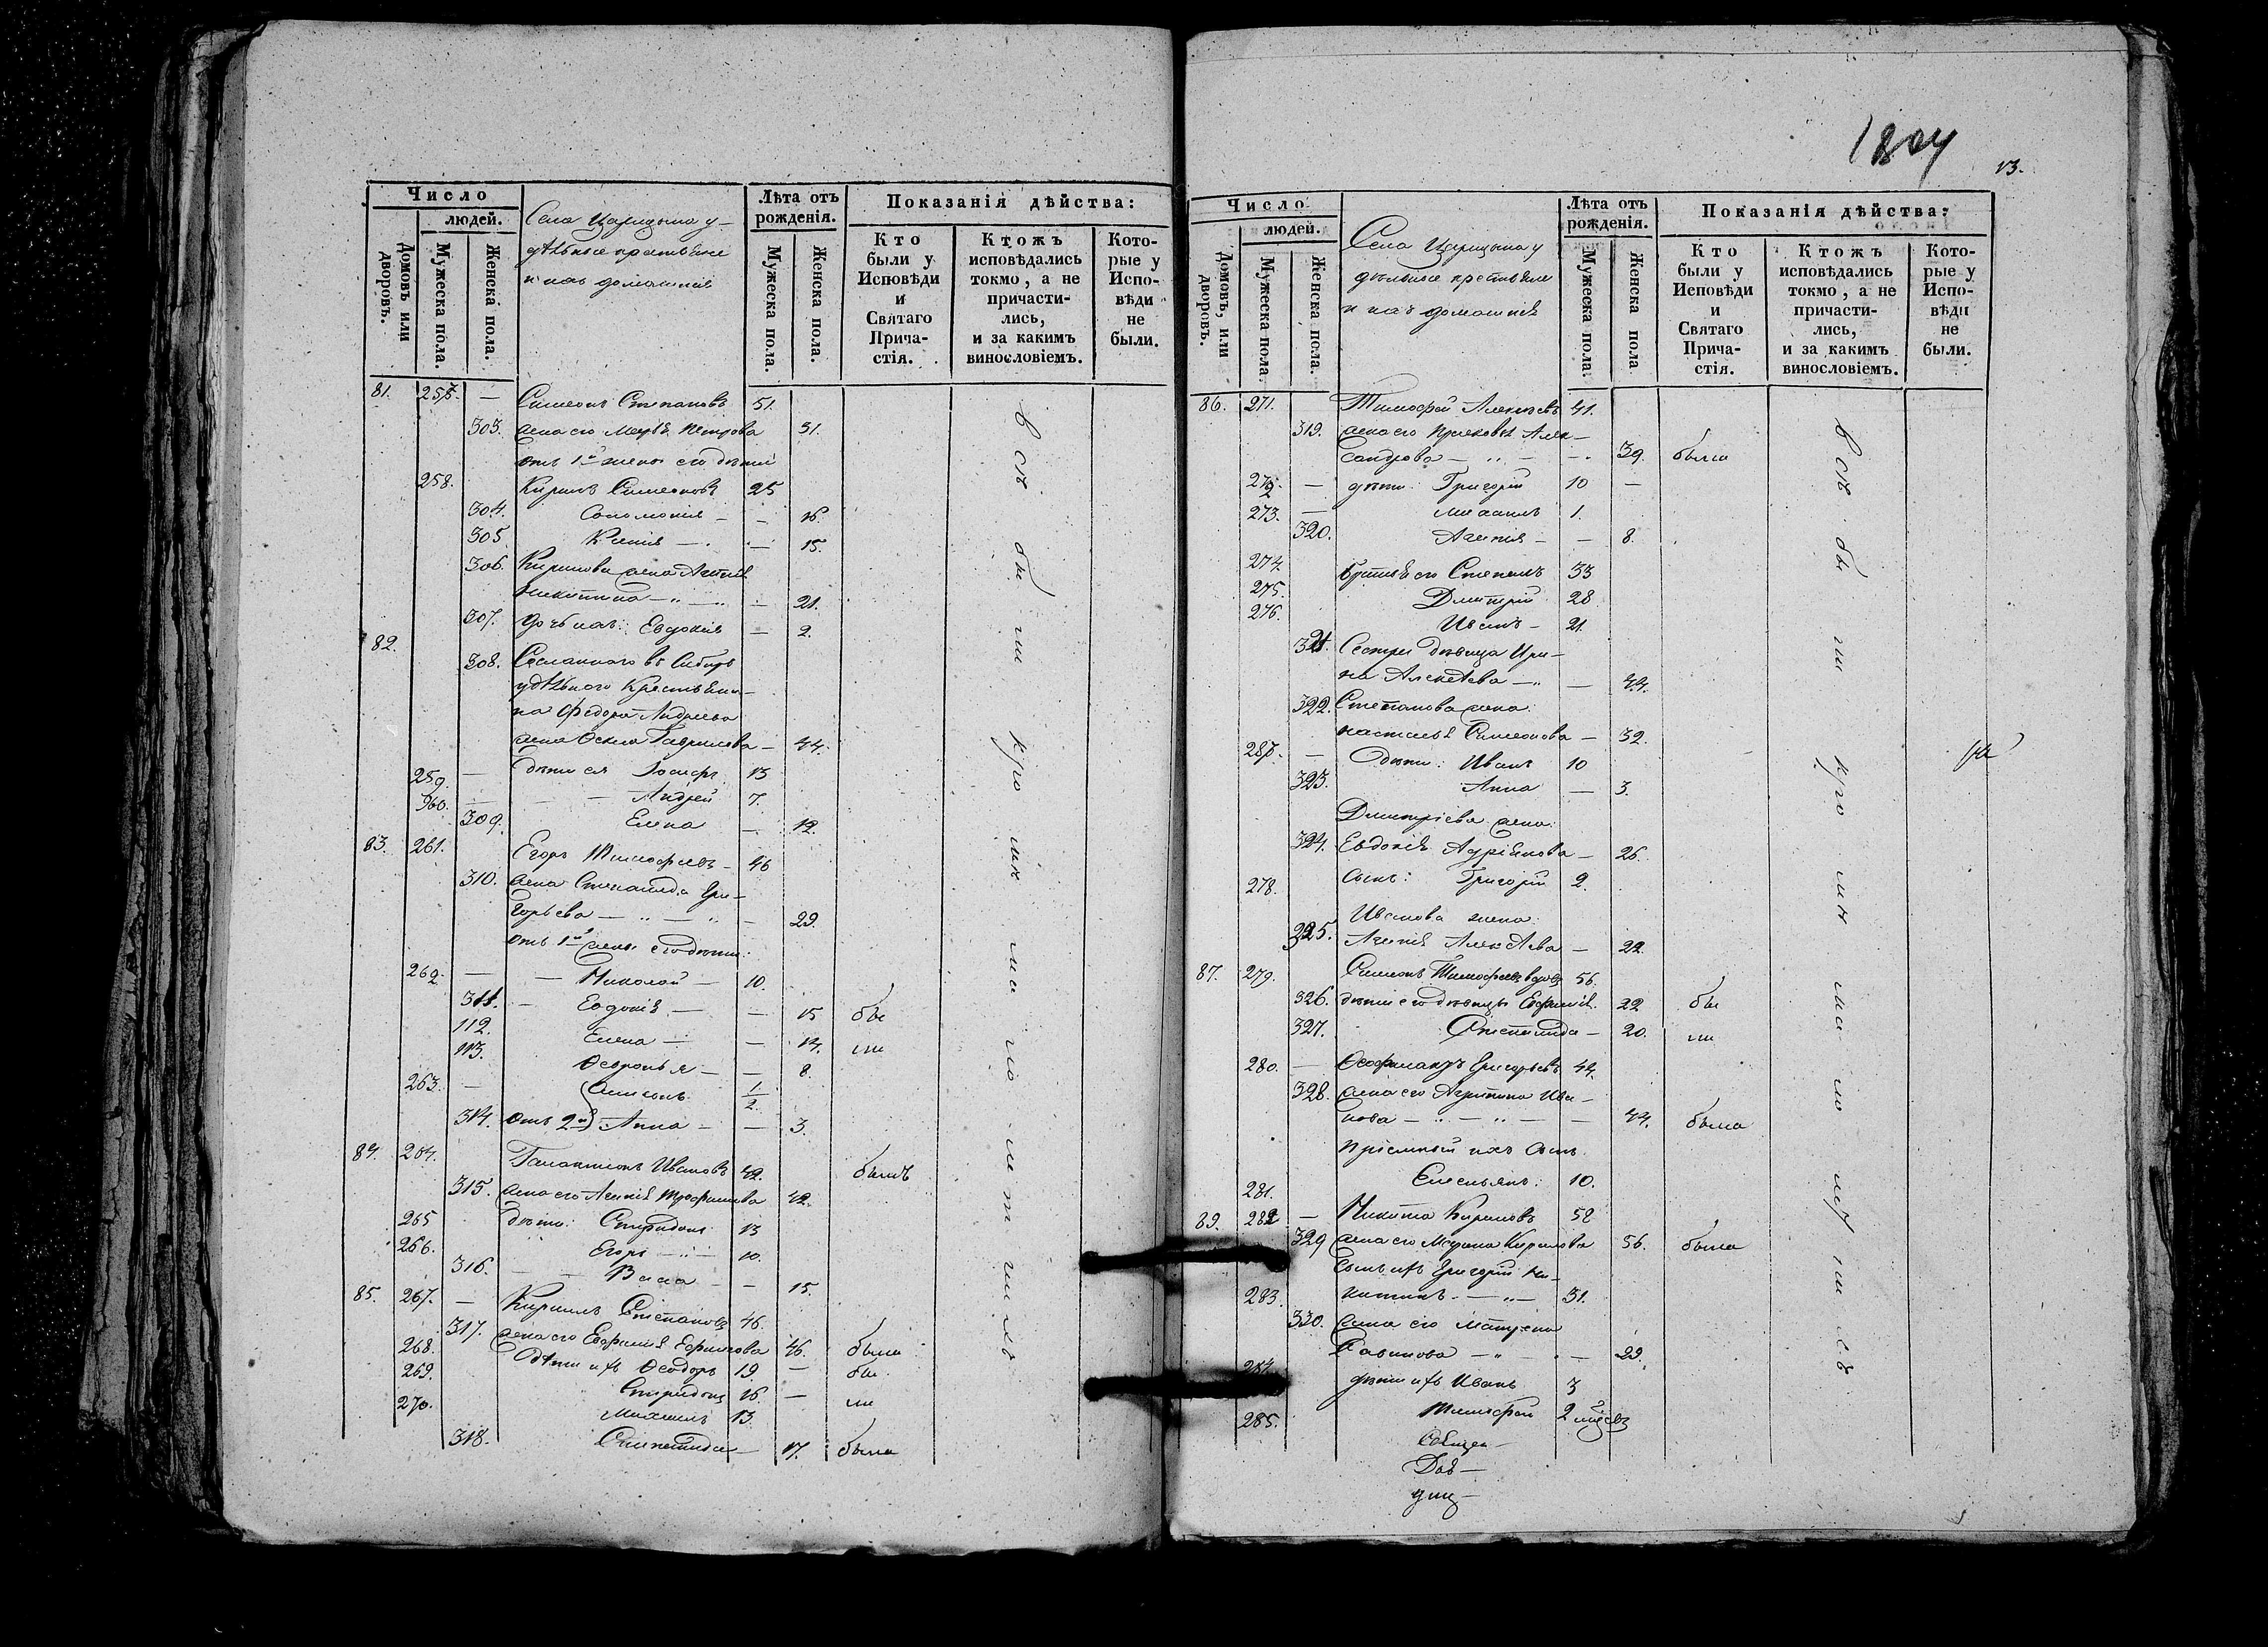 Число
людей.
Домовъ или дворовъ.
Мужеска пола.
Женска пола.
Села Царицына у-
дѣльные крестьяне
и ихъ домашніе
Лѣта отъ рожденія.
Мужеска пола.
Женска пола.
Показанія дѣйства:
Кто были у Исповѣди и Святаго Прича-стія.
Ктожъ исповѣдались токмо, а не причасти-лись, и за какимъ винословіемъ.
Кото-рые у Испо-вѣди не были.
81. 257. — Симеонъ Степановъ 51.
303. жена его Марѳа Петрова 31.
отъ 1й жены его дѣти
258. Кирилъ Симеоновъ 25
304. Соломонія — — 16.
305. Ксенія — — 15.
306. Кирилова жена Агапія
Никитина — " — " — 21.
307. дочь ихъ: Евдокія — 2.
82. 308. Сосланнаго въ Сибирь
удѣльнаго Крестьяни-
на Федора Андреева
жена Ѳекла Гаврилова — 44.
259. — дѣти ея Іосифъ 13
260. — — Андрей 7.
309. Елена — 12.
83. 261. Егоръ Тимофеевъ — 46
310. жена Степанида Гри-
горьева — " — " — 29.
отъ 1й жены его дѣти:
262. — — Николай — 10.
311. — Евдокія — — 15 бы
112. Елена — — 14. ли
113. Ѳедронья — — 8.
263. — Симеонъ 1/2.
314. отъ 2й Анна — — 3.
84. 264. Галактіонъ Ивановъ 42. былъ
315. жена его Агапія Трофимова 42.
265 дѣти: Спиридонъ 13
266. Егоръ — " — 10.
316. — — Васса — — 15.
85. 267. — Кирилъ Степановъ 46.
317. жена его Евфимія Ефимова 46. была
268. дѣти ихъ Ѳеодоръ 19. — бы
269. Спиридонъ 16. — ли
270. Михаилъ 13.
318. Степанида — 17. была
всѣ бы ли кро мѣ ма ло лѣт нихъ
1804
13.
Число
людей.
Домовъ, или дворовъ.
Мужеска пола
Женска пола.
Села Царицына у
дѣльные крестьяне
и ихъ домашніе
Лѣта отъ рожденія.
Мужеска пола.
Женска пола
Показанія дѣйства:
Кто были у Исповѣди и Святаго Прича-стія.
Ктожъ исповѣдались токмо, а не причасти-лись, и за какимъ винословіемъ.
Кото-рые у Испо-вѣди не были.
86. 271. Тимофей Алексѣевъ 41.
319. жена его Прасковья Алек-
сандрова — " — — 39. была
272. — дѣти: Григорій 10 —
273. — Михаилъ 1.
320. Агапія — — 8.
274. братья его Степанъ 33
275. Дмитрій 28
276. Иванъ — 21.
321. Сестра дѣвица Ири-
на Алексѣева — " — 44.
322. Степанова жена:
Настасья Симеонова — 32.
287. — Дѣти: Иванъ 10
323. Анна — 3.
Дмитріева жена:
324. Евдокія Адріянова — 26.
278. Сынъ: Григорій 2.
Иванова жена:
325. Агапія Алексѣева — 22.
87. 279. Симеонъ Тимофеевъ вдовъ 56.
326. дѣти его дѣвицы Евфимія. 22 бы
327. Степанида — 20. ли
280. — Ѳеофилактъ Григорьевъ 44.
328. жена его Агрипина Ива-
нова — " — " — — 44. была
пріемный ихъ сынъ
281. Емельянъ: 10.
89. 282 — Никита Кириловъ 58
329 жена его Марина Кирилова 56. была
Сынъ ихъ Григорій Ни-
283. китинъ — " — 31.
330. жена его Матрена
Савинова — " — — 29.
284. дѣти ихъ Иванъ 3
285. Тимофей 2 мѣсяцъ
всѣ бы ли кро мѣ ма ло лѣт нихъ
Священ-